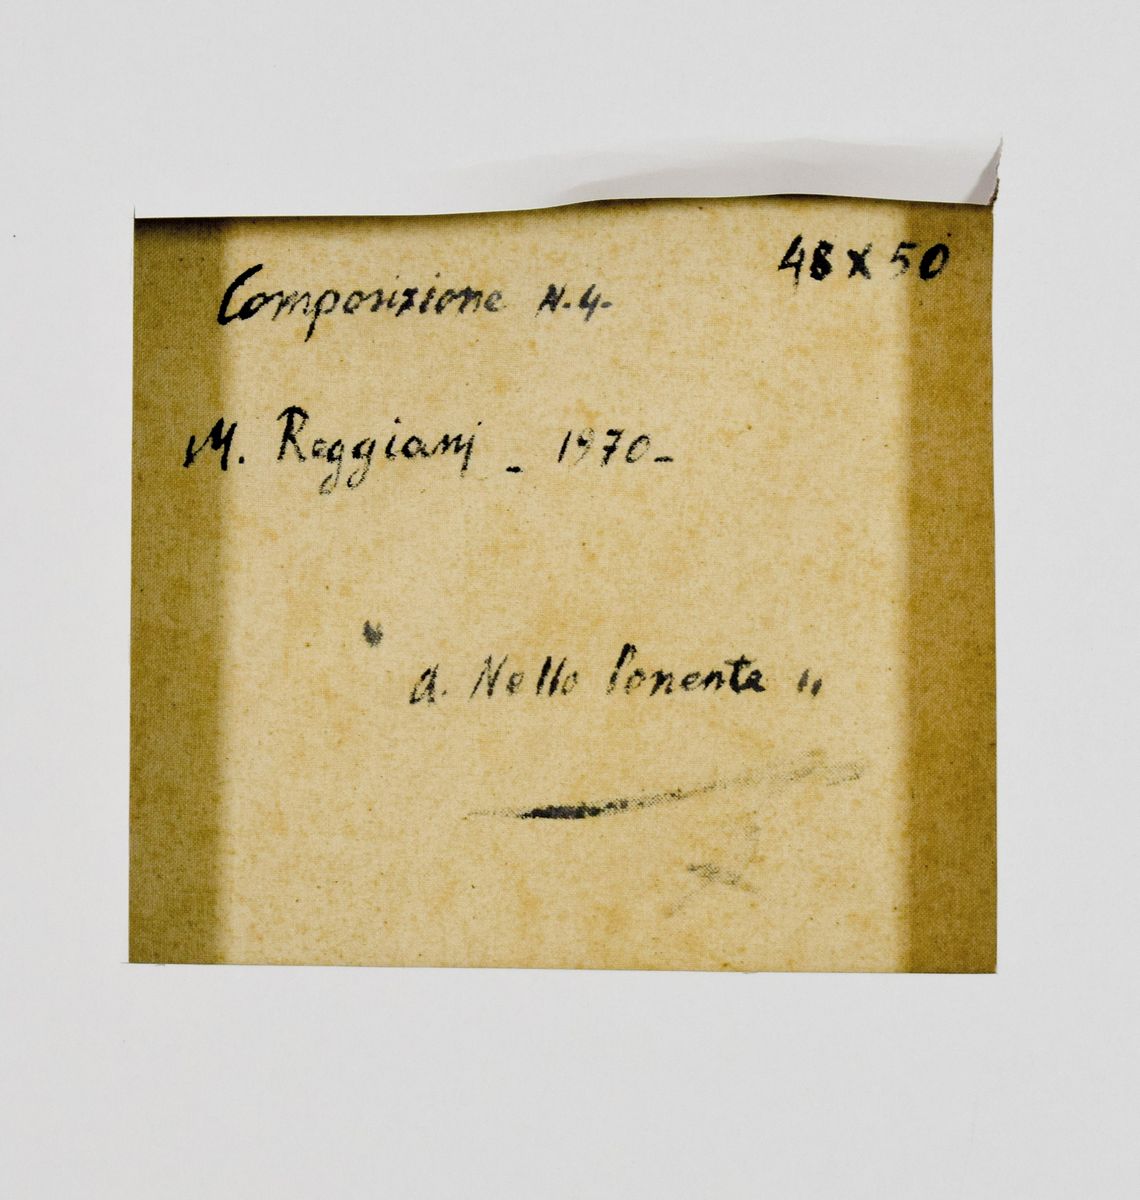 48 x 50
Composizione N.4-
M. Reggiani - 1970-
" a. Nello Ponente "